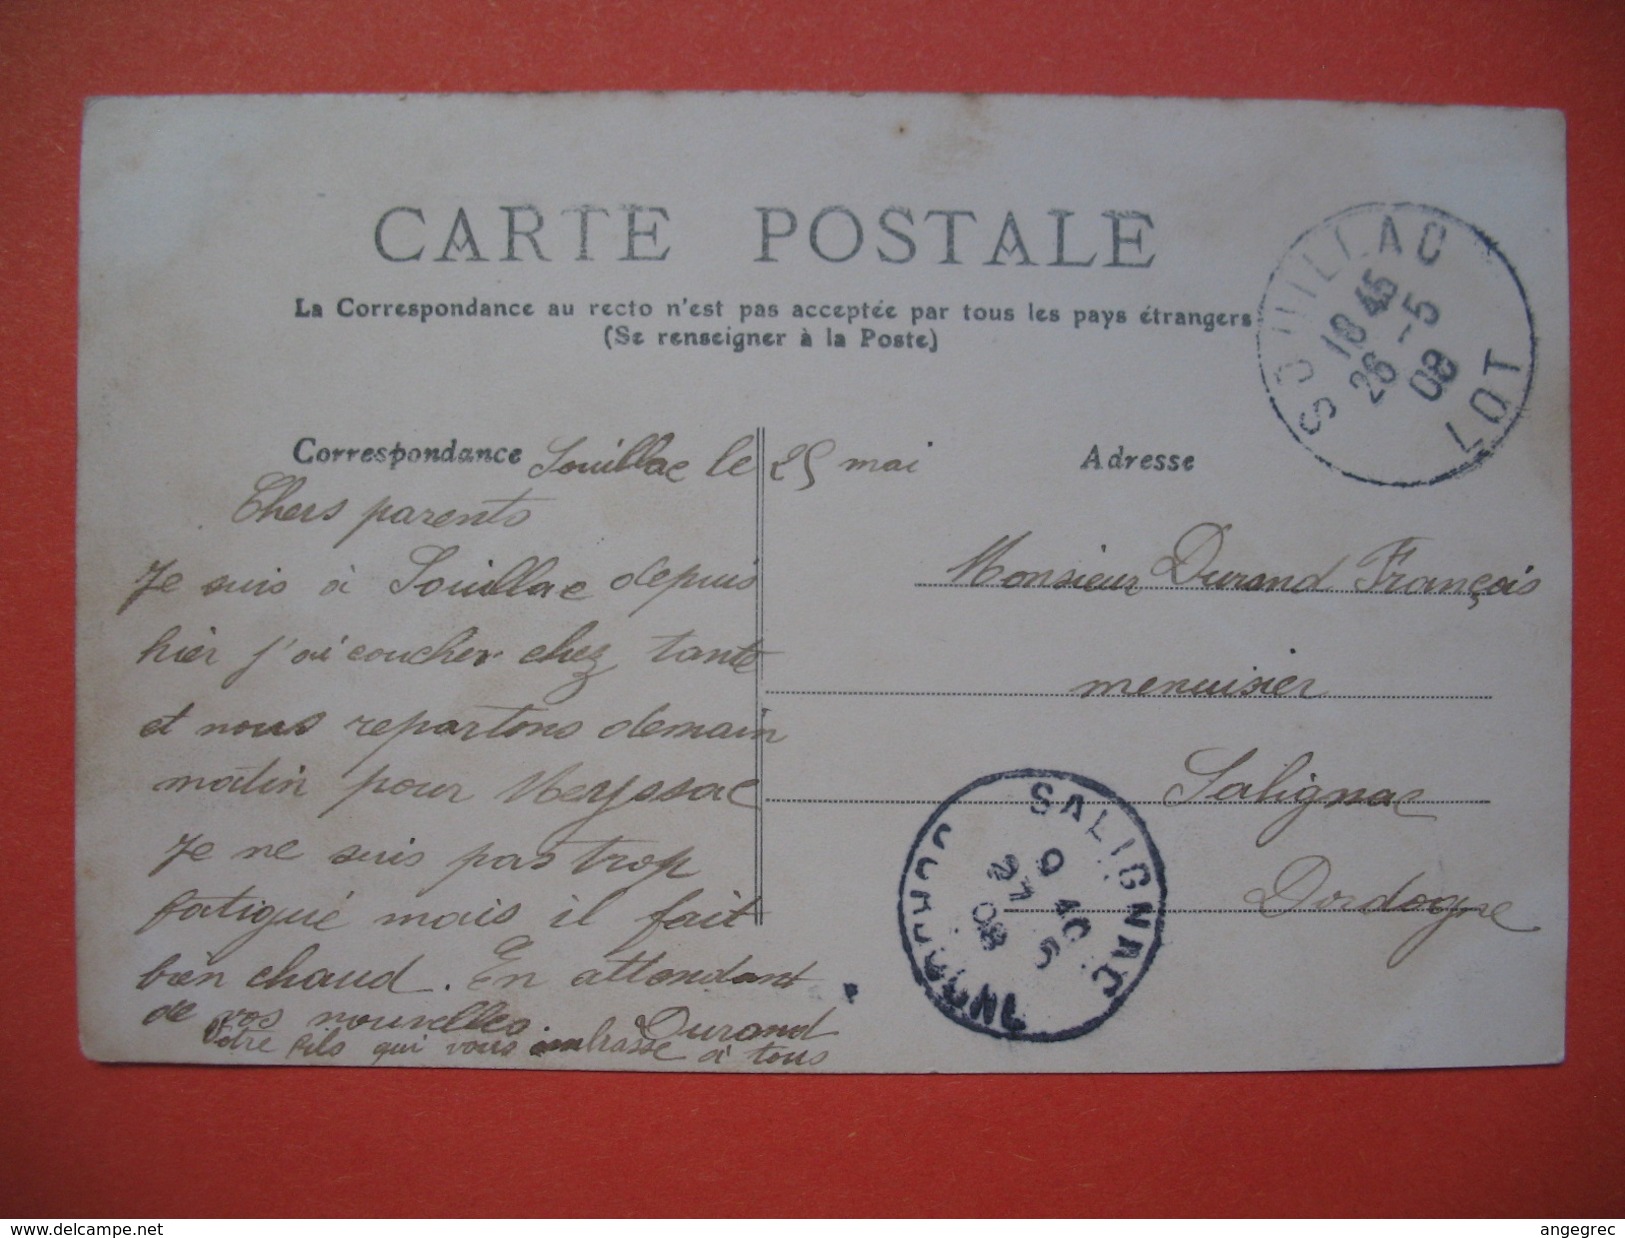 CARTE POSTALE
La Correspondance au recto n'est pas acceptée par tous les pays étrangers
(Se renseigner à la Poste)
SOUILLAC
18 45
26 -5
08
LOT
Correspondance
Adresse
Souillac le 25 mai
Chers parents
Je suis à Souillac depuis
hier j'ai coucher chez tante
et nous repartons demain
matin pour Meyssac
Je ne suis pas trop
fatigué mais il fait
bien chaud. En attendant
de vos nouvelles. Durand
Votre fils qui vous embrasse à tous
Monsieur Durand François
menuisier
Salignac
Dordogne
SALIGNAC
9 40
27 5
08
DORDOGNE
www.delcampe.net
angegrec